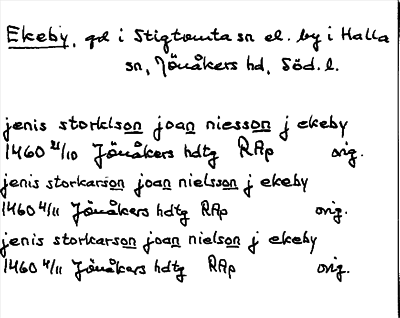 Ekeby, gd i Stigtomta sn el. by i Halla
sn, Jönåkers hd, Söd. l.
jenis storklson joan niesson j ekeby
1460 21/10 Jönåkers hdtg RAp orig.
jenis storkarson joan nielsson j ekeby
1460 4/11 Jönåkers hdtg RAp orig.
jenis storkarson joan nielson j ekeby
1460 4/11 Jönåkers hdtg RAp orig.